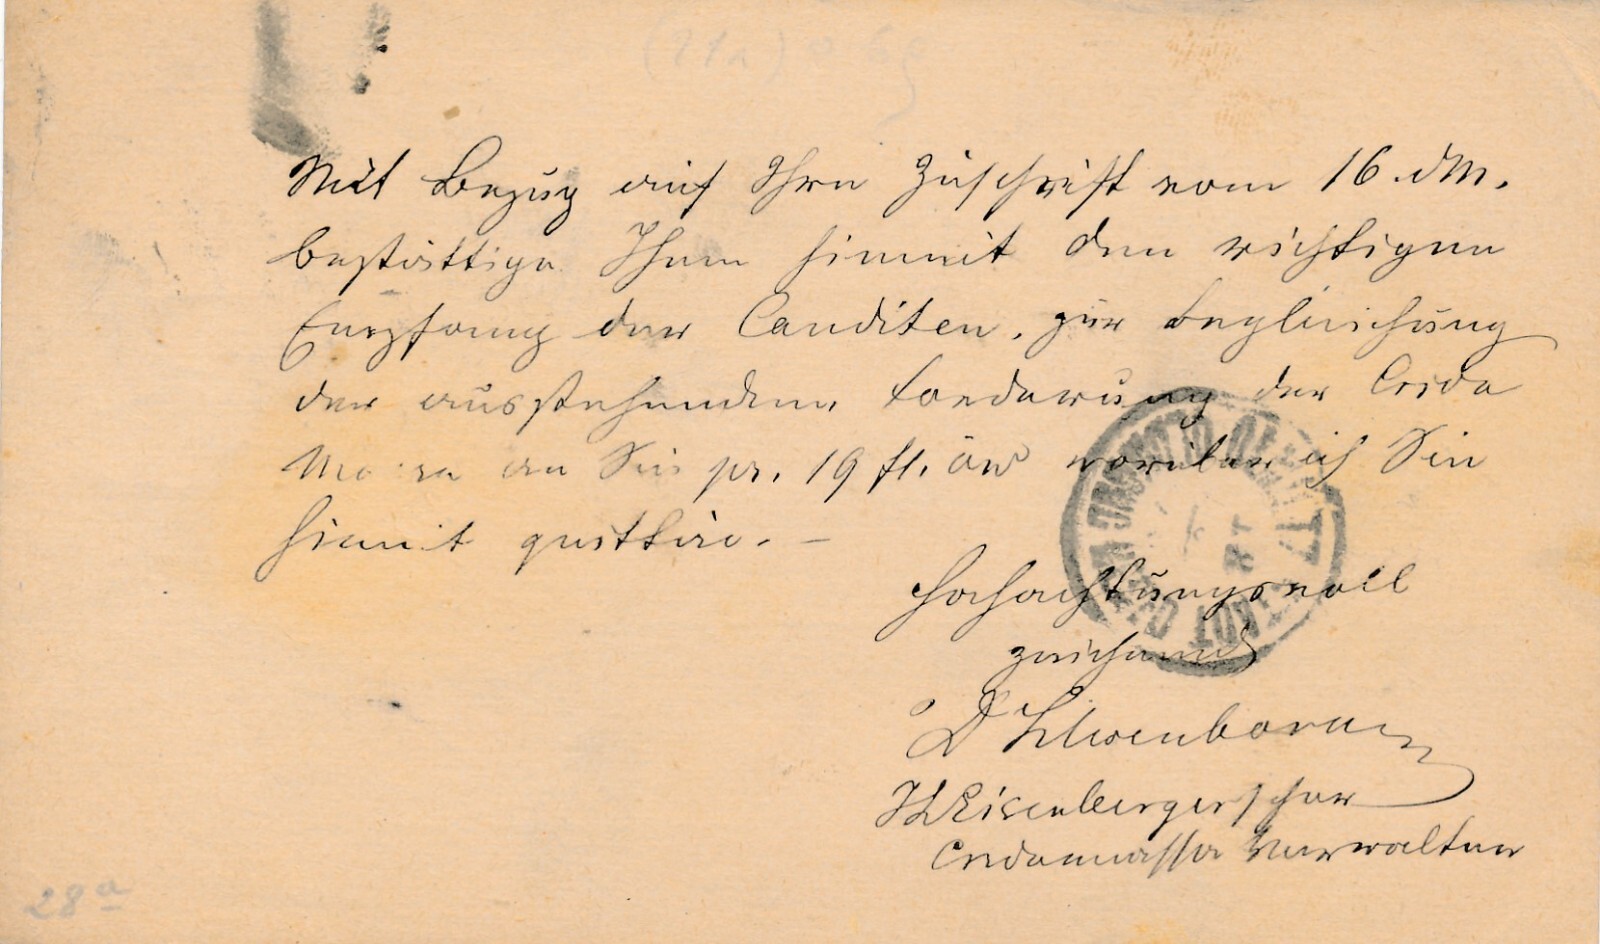 (21a) 
Mit Bezug auf Ihre Zuschrift vom 16. dM.
bestättige Ihnen hiemit den richtigen
Empfang der Canditen, zur Begleichung
der ausstehenden Forderung der Crida
Massa an Sie pr. 19 fl. öW worüber ich Sie
hiemit quittire. –
Hochachtungsvoll
zeichnend
D
H Eisenbergerscher
Cridamassa Verwalter
28a